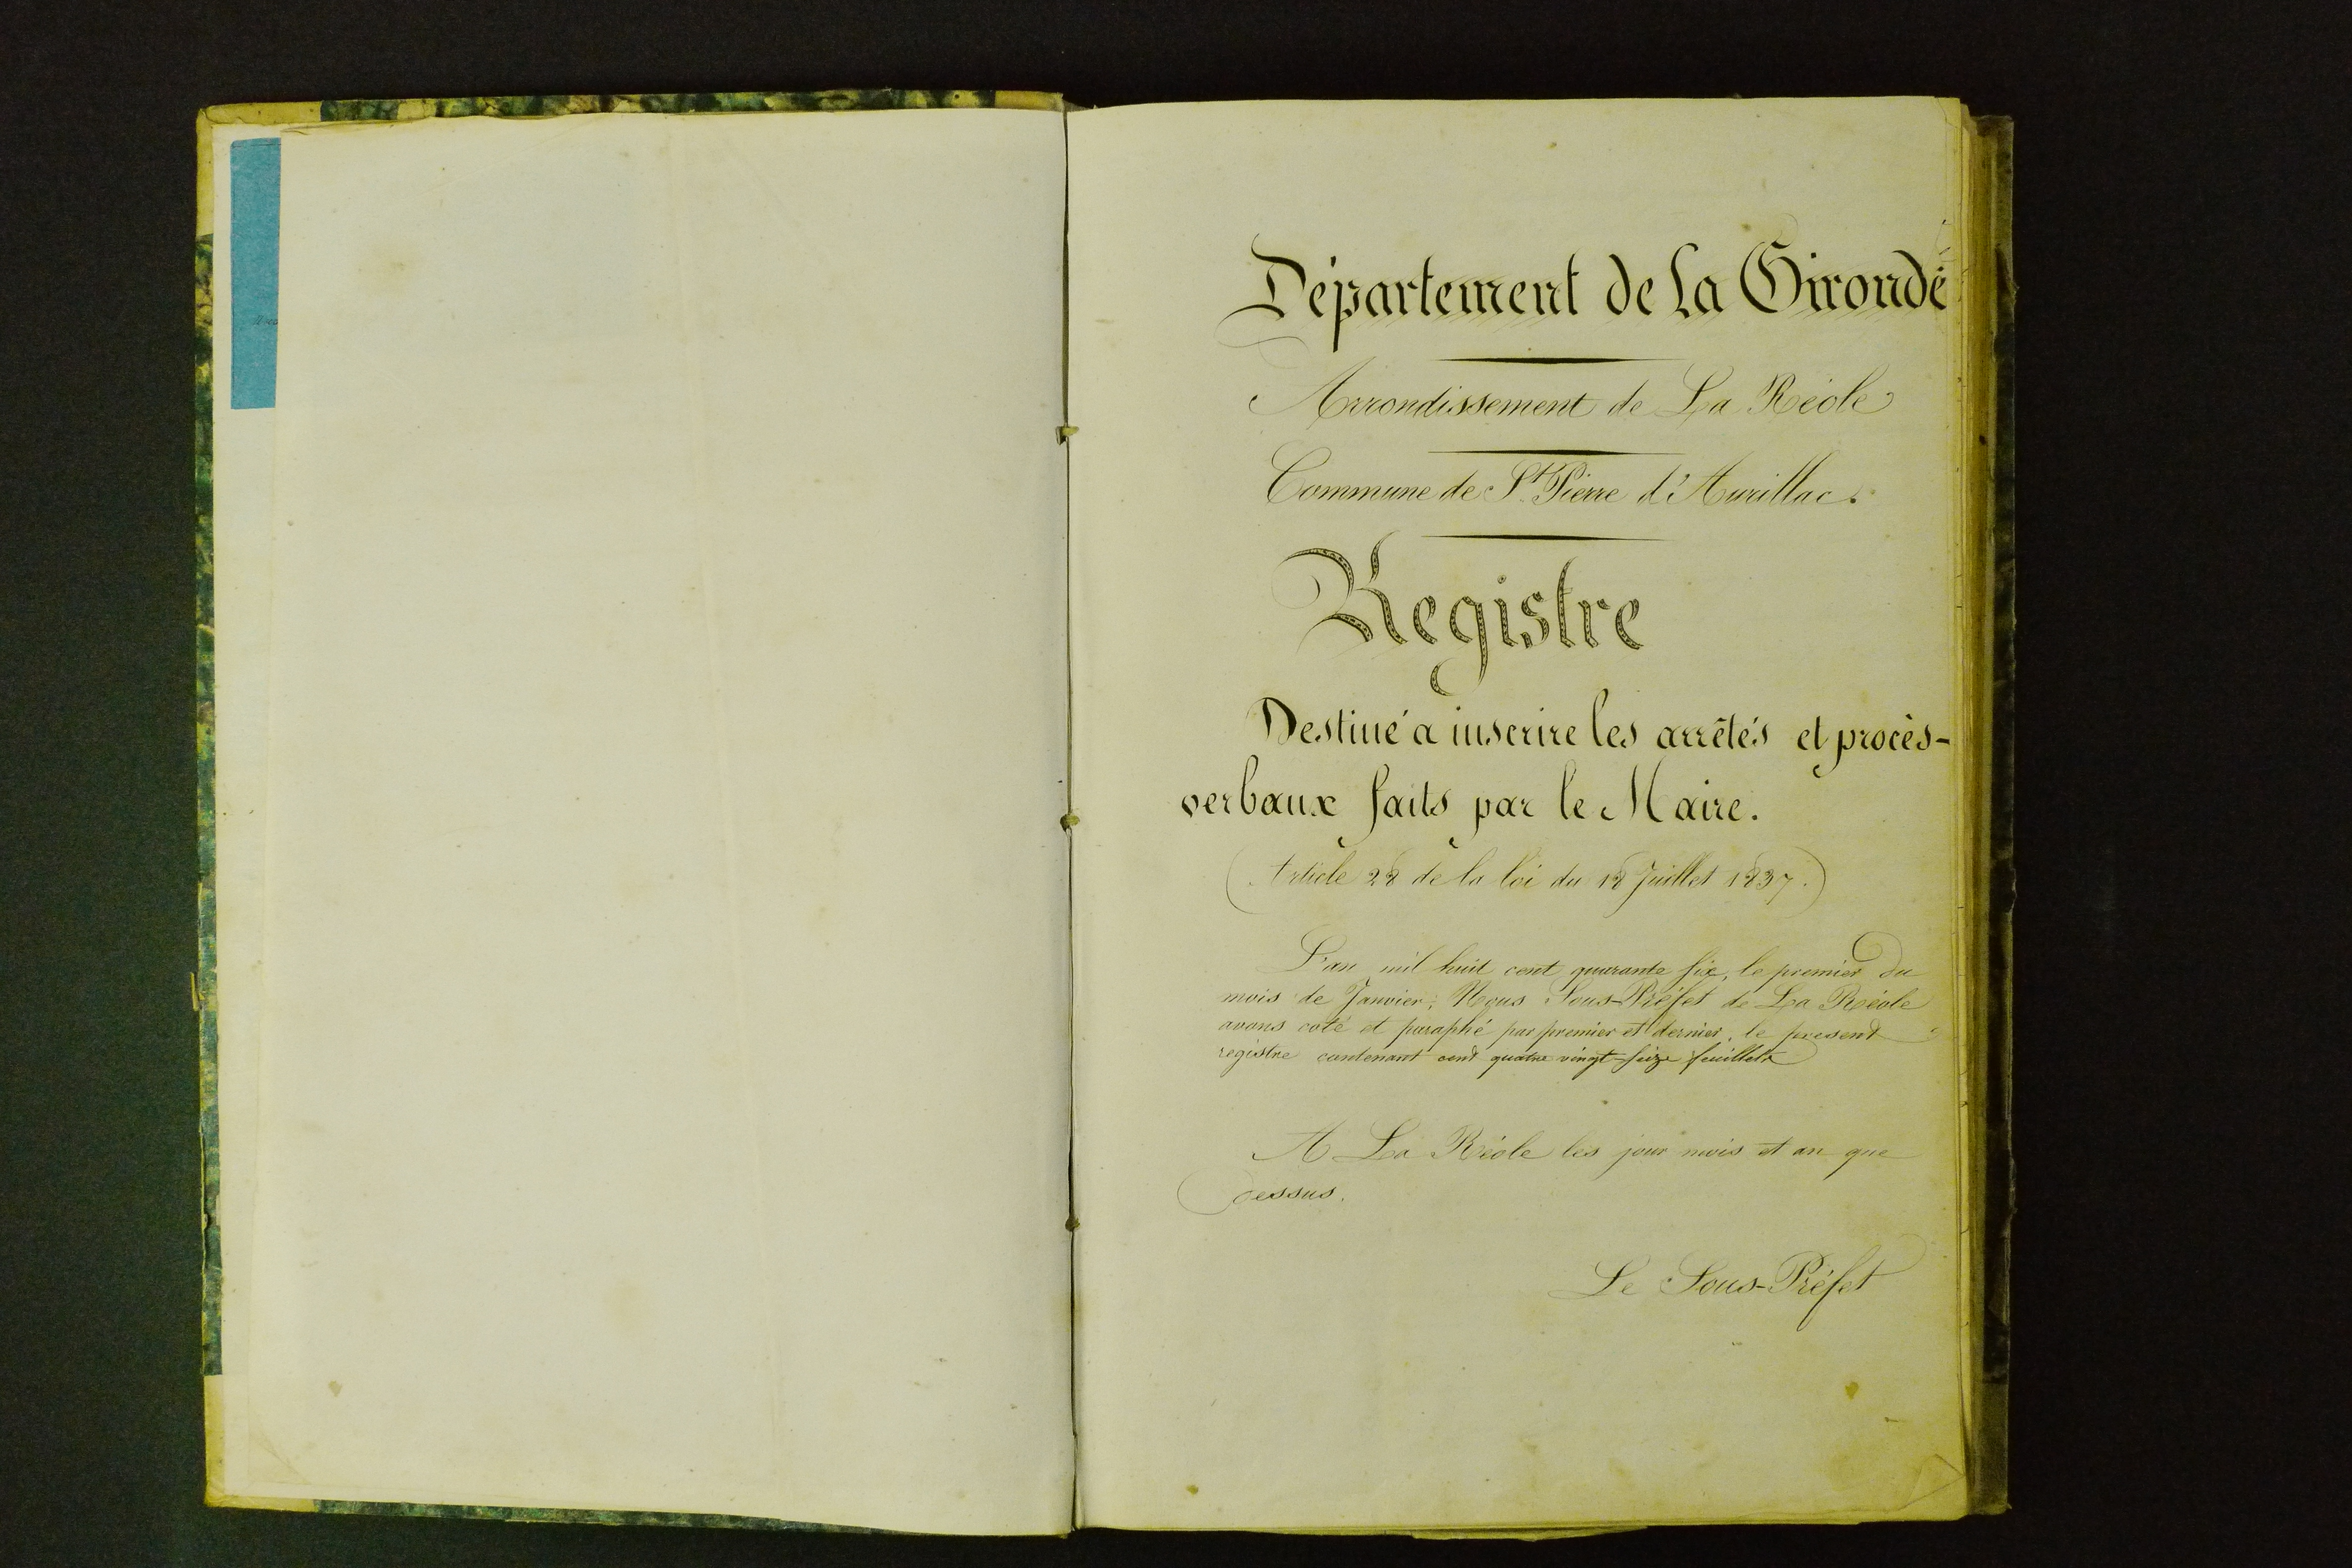 Département de la Gironde
Arrondissement de La Réole
Commune de St Pierre d'Aurillac.
Registre
Destiné a inscrire les arrêtés et procès-
verbaux faits par le Maire.
(Article 28 de la loi du 18 Juillet 1837.)
L'an mil huit cent quarante six, le premier du
mois de Janvier, Nous Sous-Préfet de La Réole
avons coté et paraphé par premier et dernier, le present
registre contenant cent quatre vingt seize feuillets
A La Réole les jour mois et an que
dessus.
Le Sous-Préfet